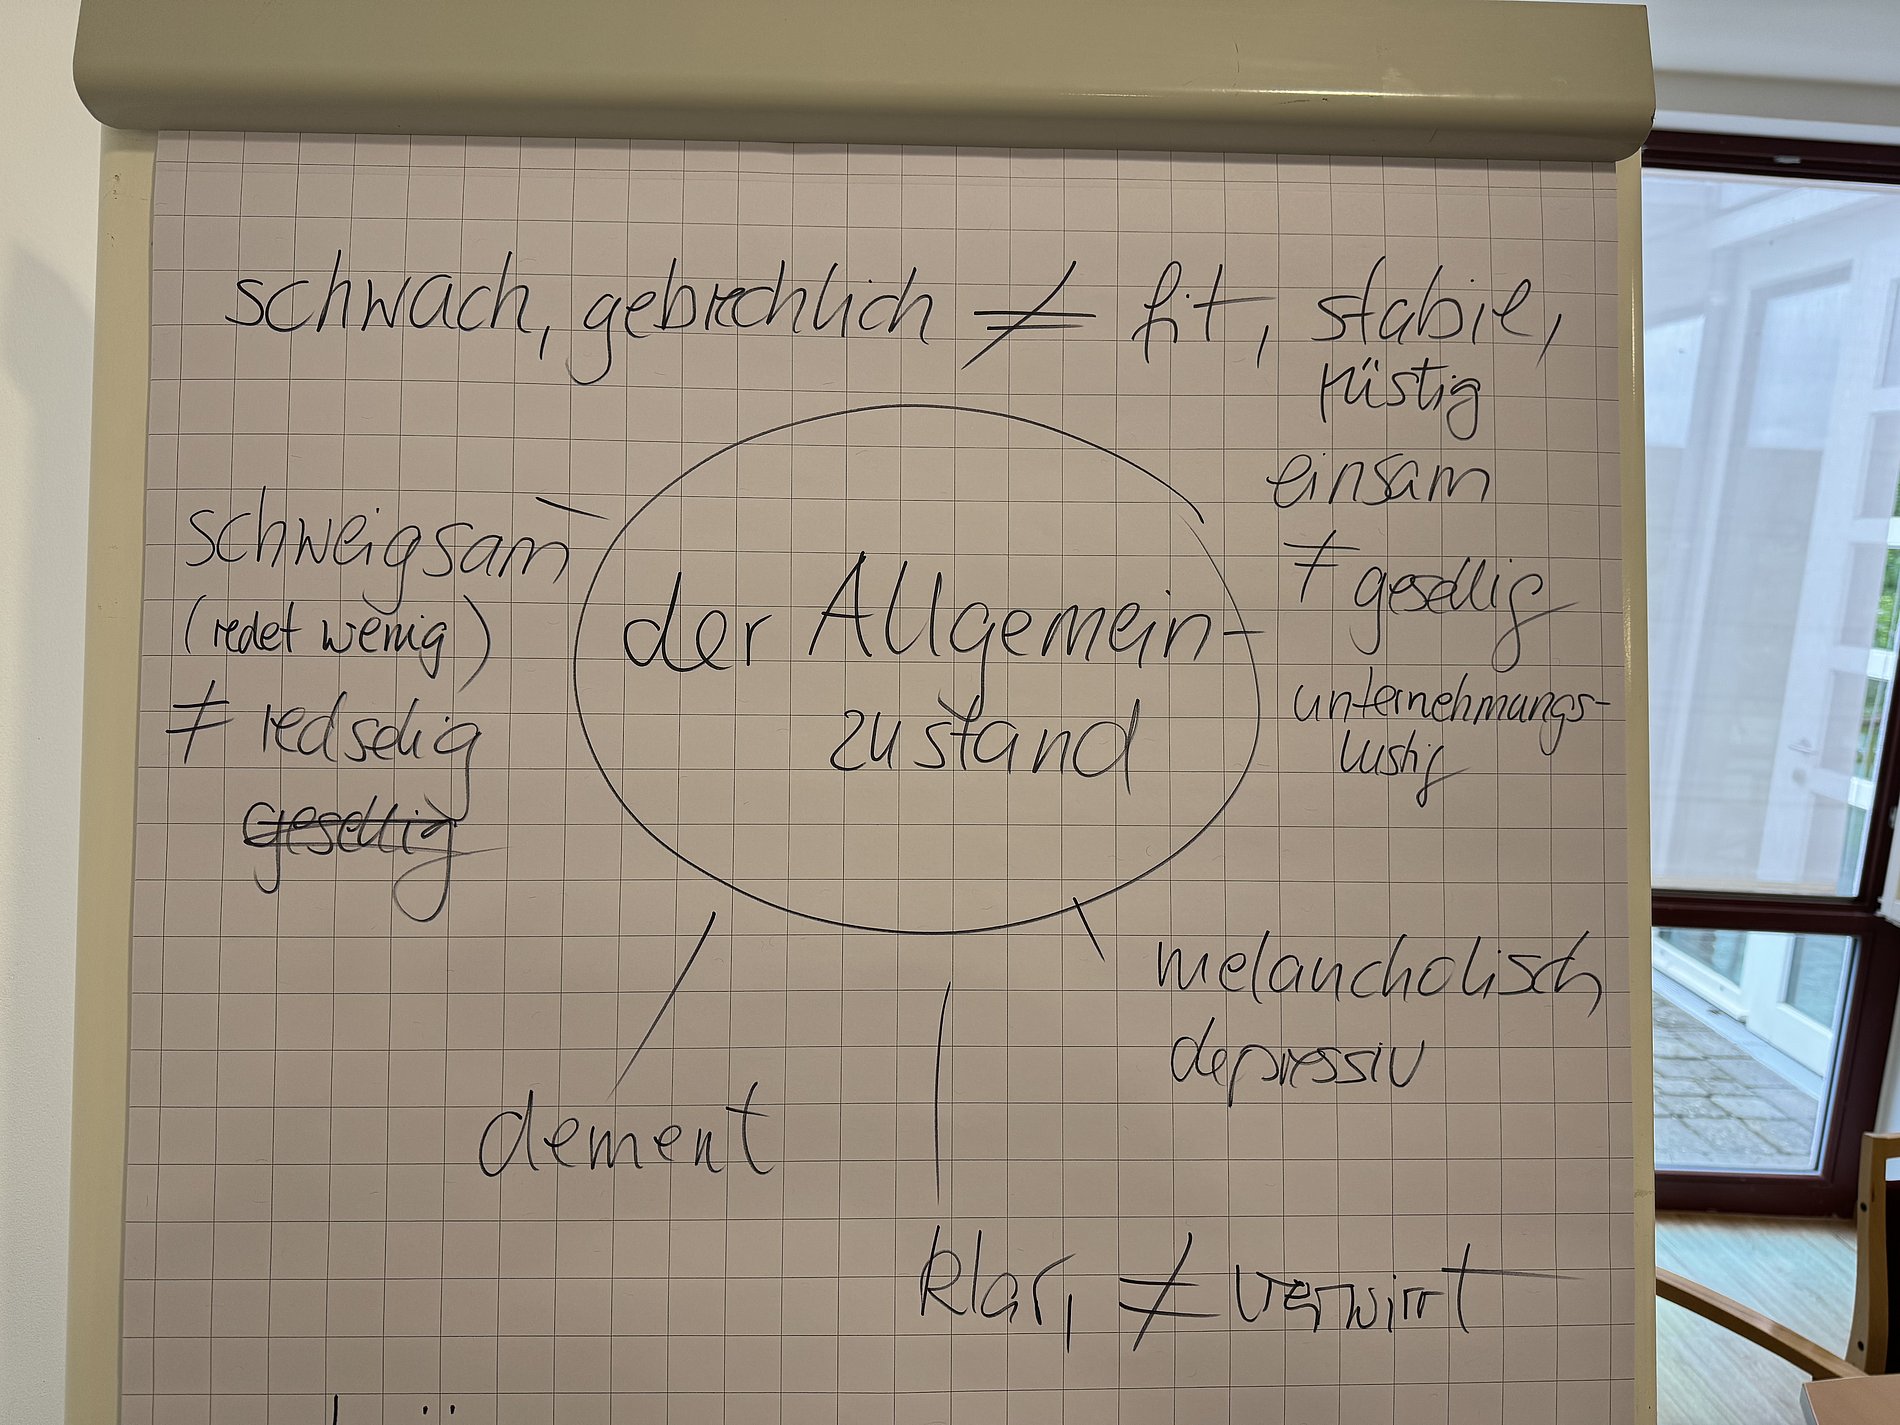 schwach, gebrechlich ≠ fit, stabil,
rüstig
einsam
≠ gesellig
unternehmungs-
lustig
schweigsam
(redet wenig)
≠ redselig
gesellig
der Allgemein-
zustand
melancholisch
depressiv
dement
klar, ≠ verwirrt